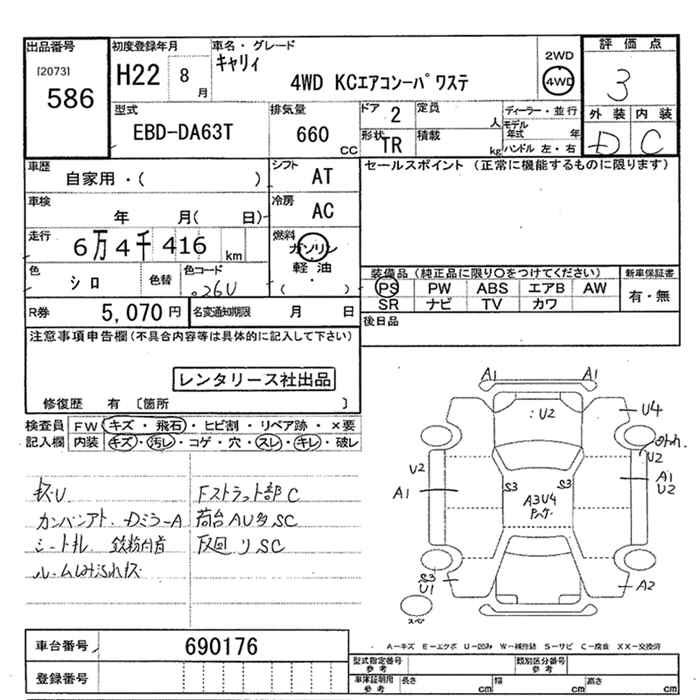 出品番号 初度登録年月 車名・グレード 2WD 評価点
[2073] 586 H22 8月 キャリィ 4WD KCエアコン-パワステ 4WD 3
型式 排気量 ドア 2 定員 人 ディーラー・並行 外装 内装
EBD-DA63T 660 CC 形状 TR 積載 kg モデル年式 年 ハンドル 左・右 D C
車歴 自家用・( ) シフト AT セールスポイント (正常に機能するものに限ります)
車検 年 月( 日) 冷房 AC
走行 6万4千416 km 燃料 ガソリン
軽油
( )
色 シロ 色替 色コード 026U
装備品(純正品に限り○をつけてください) 新車保証書
PS PW ABS エアB AW 有・無
SR ナビ TV カワ
R券 5,070円 名変通知期限 月 日 後日品
注意事項申告欄(不具合内容等は具体的に記入して下さい)
レンタリース社出品
修復歴 有 〔箇所 〕
検査員 FW キズ・飛石・ヒビ割・リペア跡・×要
記入欄 内装 キズ・汚レ・コゲ・穴・スレ・キレ・破レ
キズU Fストラット部C
カンバンアト. Dミラ-A 荷台AU多SC
シート 鉄粉
SC
A1 A1
U2 U4
U2
U2
A1 S3 S3 A1
U2
A3U4
S3
U1 A2
スペア
車台番号 690176
A-キズ E-エクボ U-凹み W-補修跡 S-サビ C-腐食 XX-交換済
登録番号 型式指定番号 参考 類別区分番号 参考
車庫証明用 参考 長さ cm 幅 cm 高さ cm